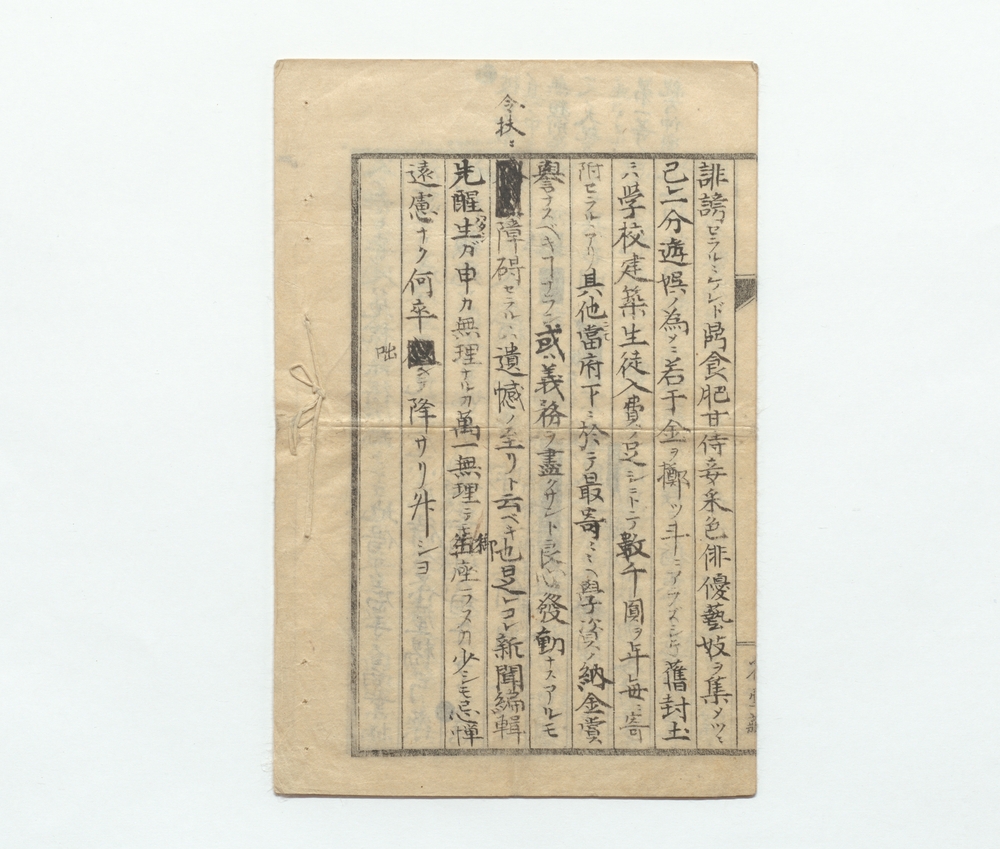 誹謗セラルミケンド鳥食肥甘侍妾采色俳優藝妓ヲ集メツヽ
己ニ分遊娯ノ為メニ若干金ヲ擲ッ舊封土
ハ学校建築生徒入費ノ足シニトテ数千圓ヲ年毎ニ寄
附セラルヽアリ其他當府下ニ於テ最寄ミヘ學資ノ納金賞
譽ナスベキコナラン或ハ義務ヲ盡クサント良心發動ナスアルモ
令扶ニ
障碍セラルヽハ遺憾ノ至リト云ベキ也是レコレ新聞編輯
先醒生ガ申カ無理ナルカ萬一無理デ御座ラスカ少シモ忌憚
遠慮ナク何卒ヲ降サリ舛シヨ
咄